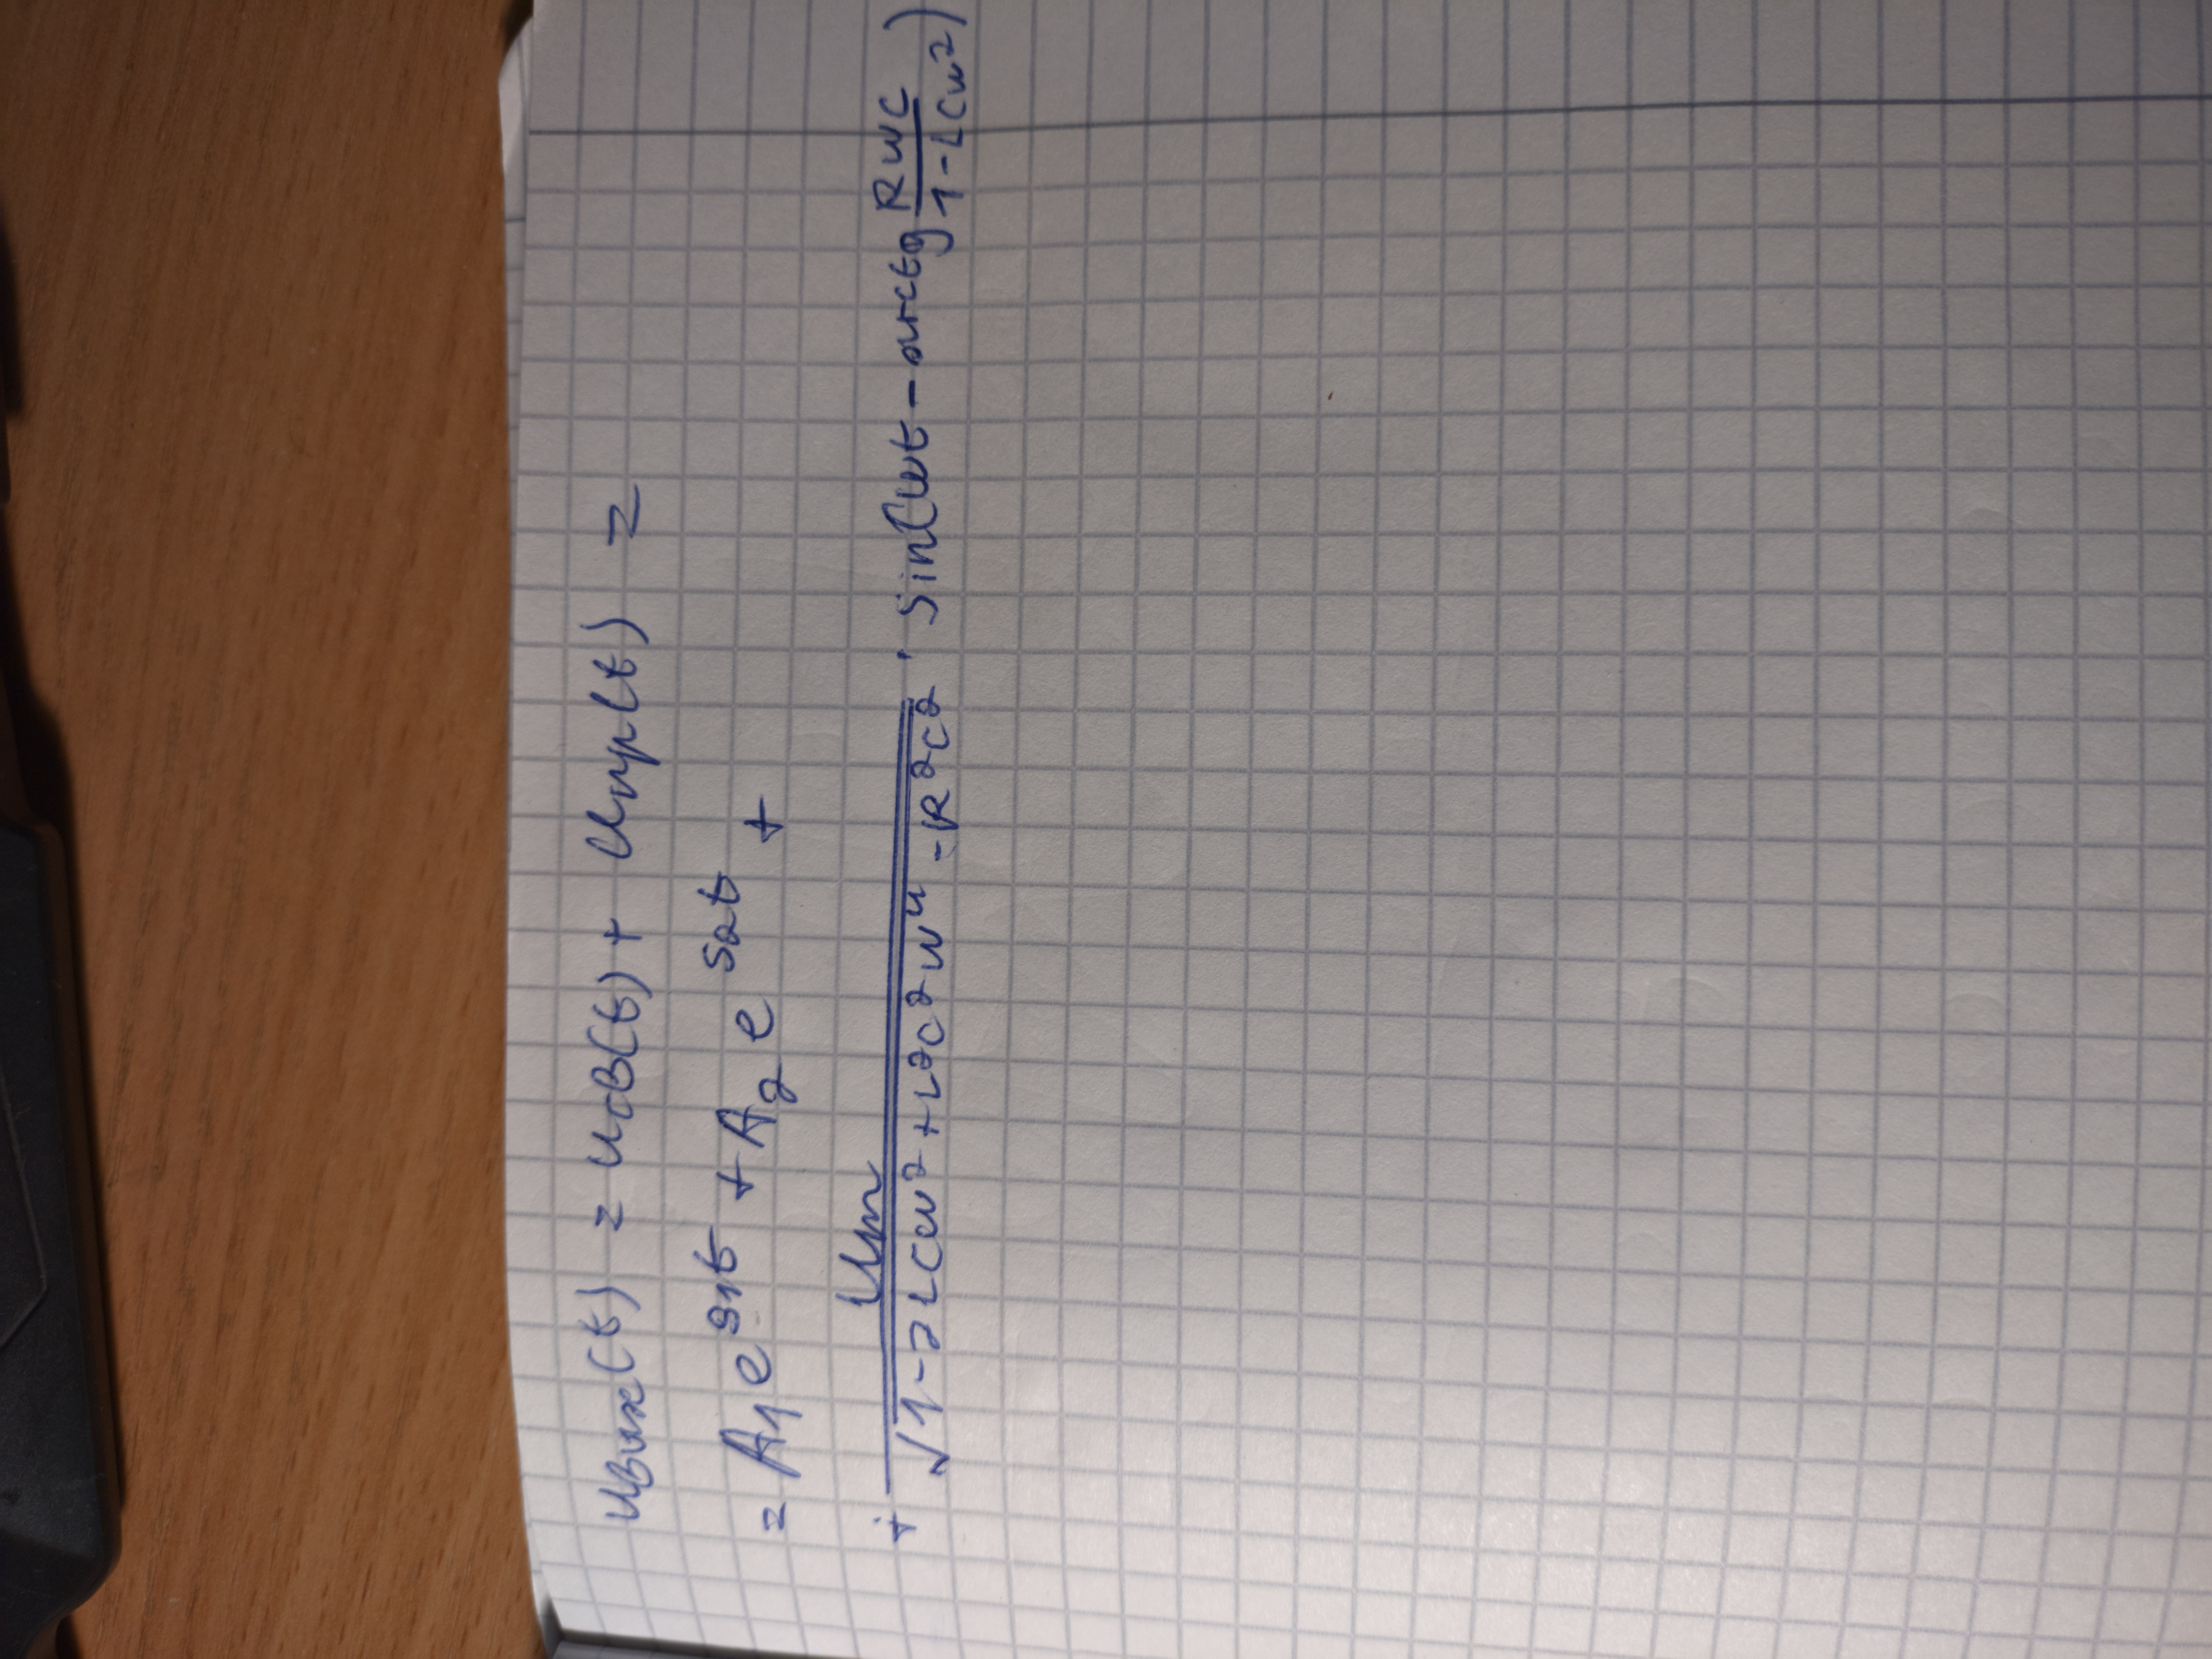 uвых(t) = uсв(t) + uпр(t) =
= A₁e^{s₁t} + A₂e^{s₂t} +
+ Um / √(1-2LCω² + L²C²ω⁴ - R²C²) · sin(ωt - arctg RωC / (1-LCω²))